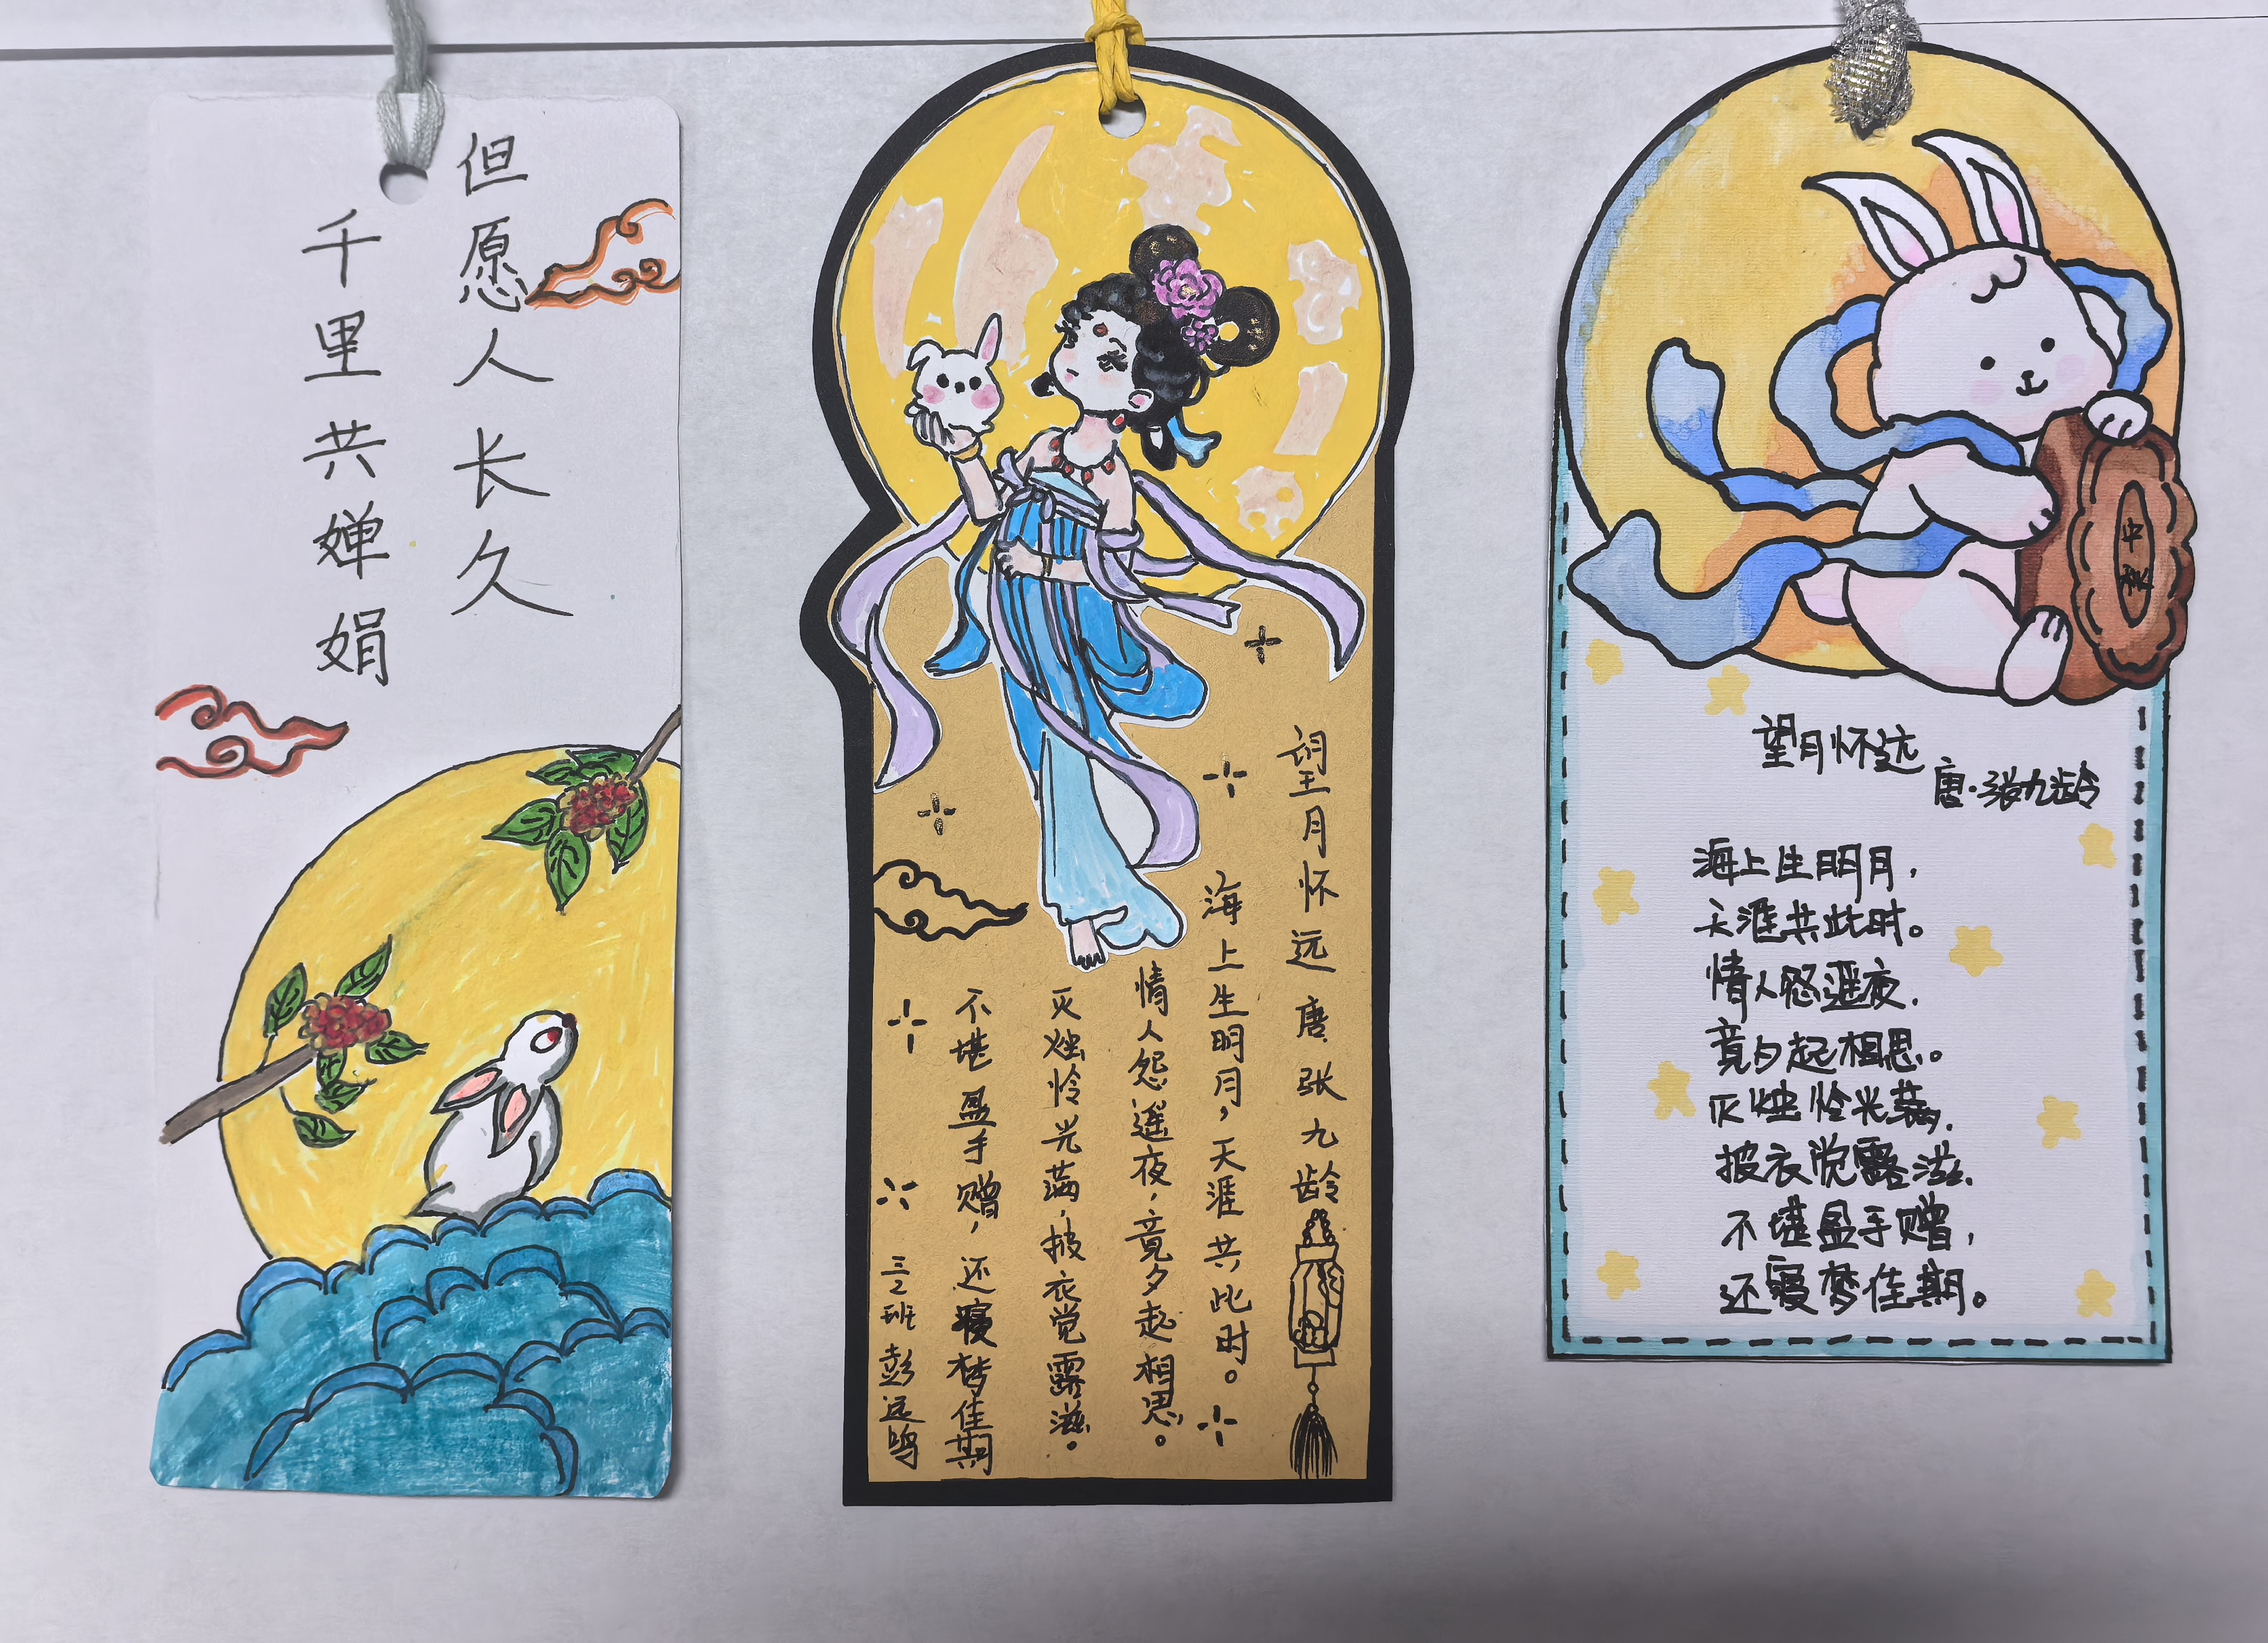 但愿人长久
千里共婵娟
望月怀远 唐 张九龄
海上生明月，天涯共此时。
情人怨遥夜，竟夕起相思。
灭烛怜光满，披衣觉露滋。
不堪盈手赠，还寝梦佳期
三2班 彭远鸣
中秋
望月怀远
唐·张九龄
海上生明月，
天涯共此时。
情人怨遥夜，
竟夕起相思。
灭烛怜光满，
披衣觉露滋。
不堪盈手赠，
还寝梦佳期。